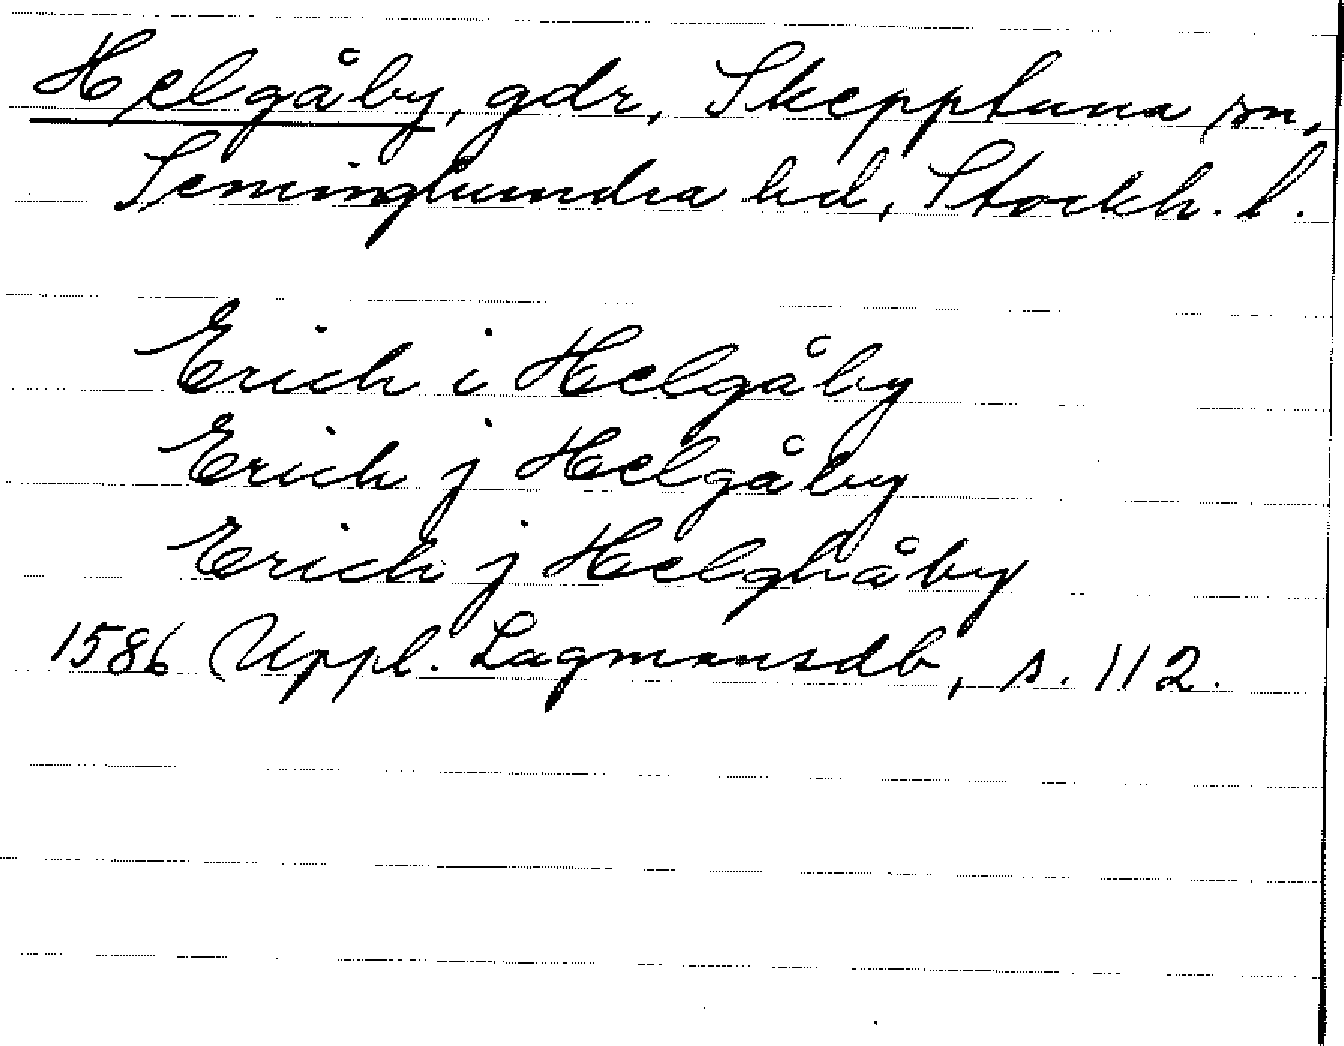 Helgåby, gdr, Skepptuna sn,
Seminghundra hd, Stockh. l.
Erich i Helgåby
Erich j Helgåby
Erich j Helghåby
1586 Uppl. Lagmansdb, s. 112.